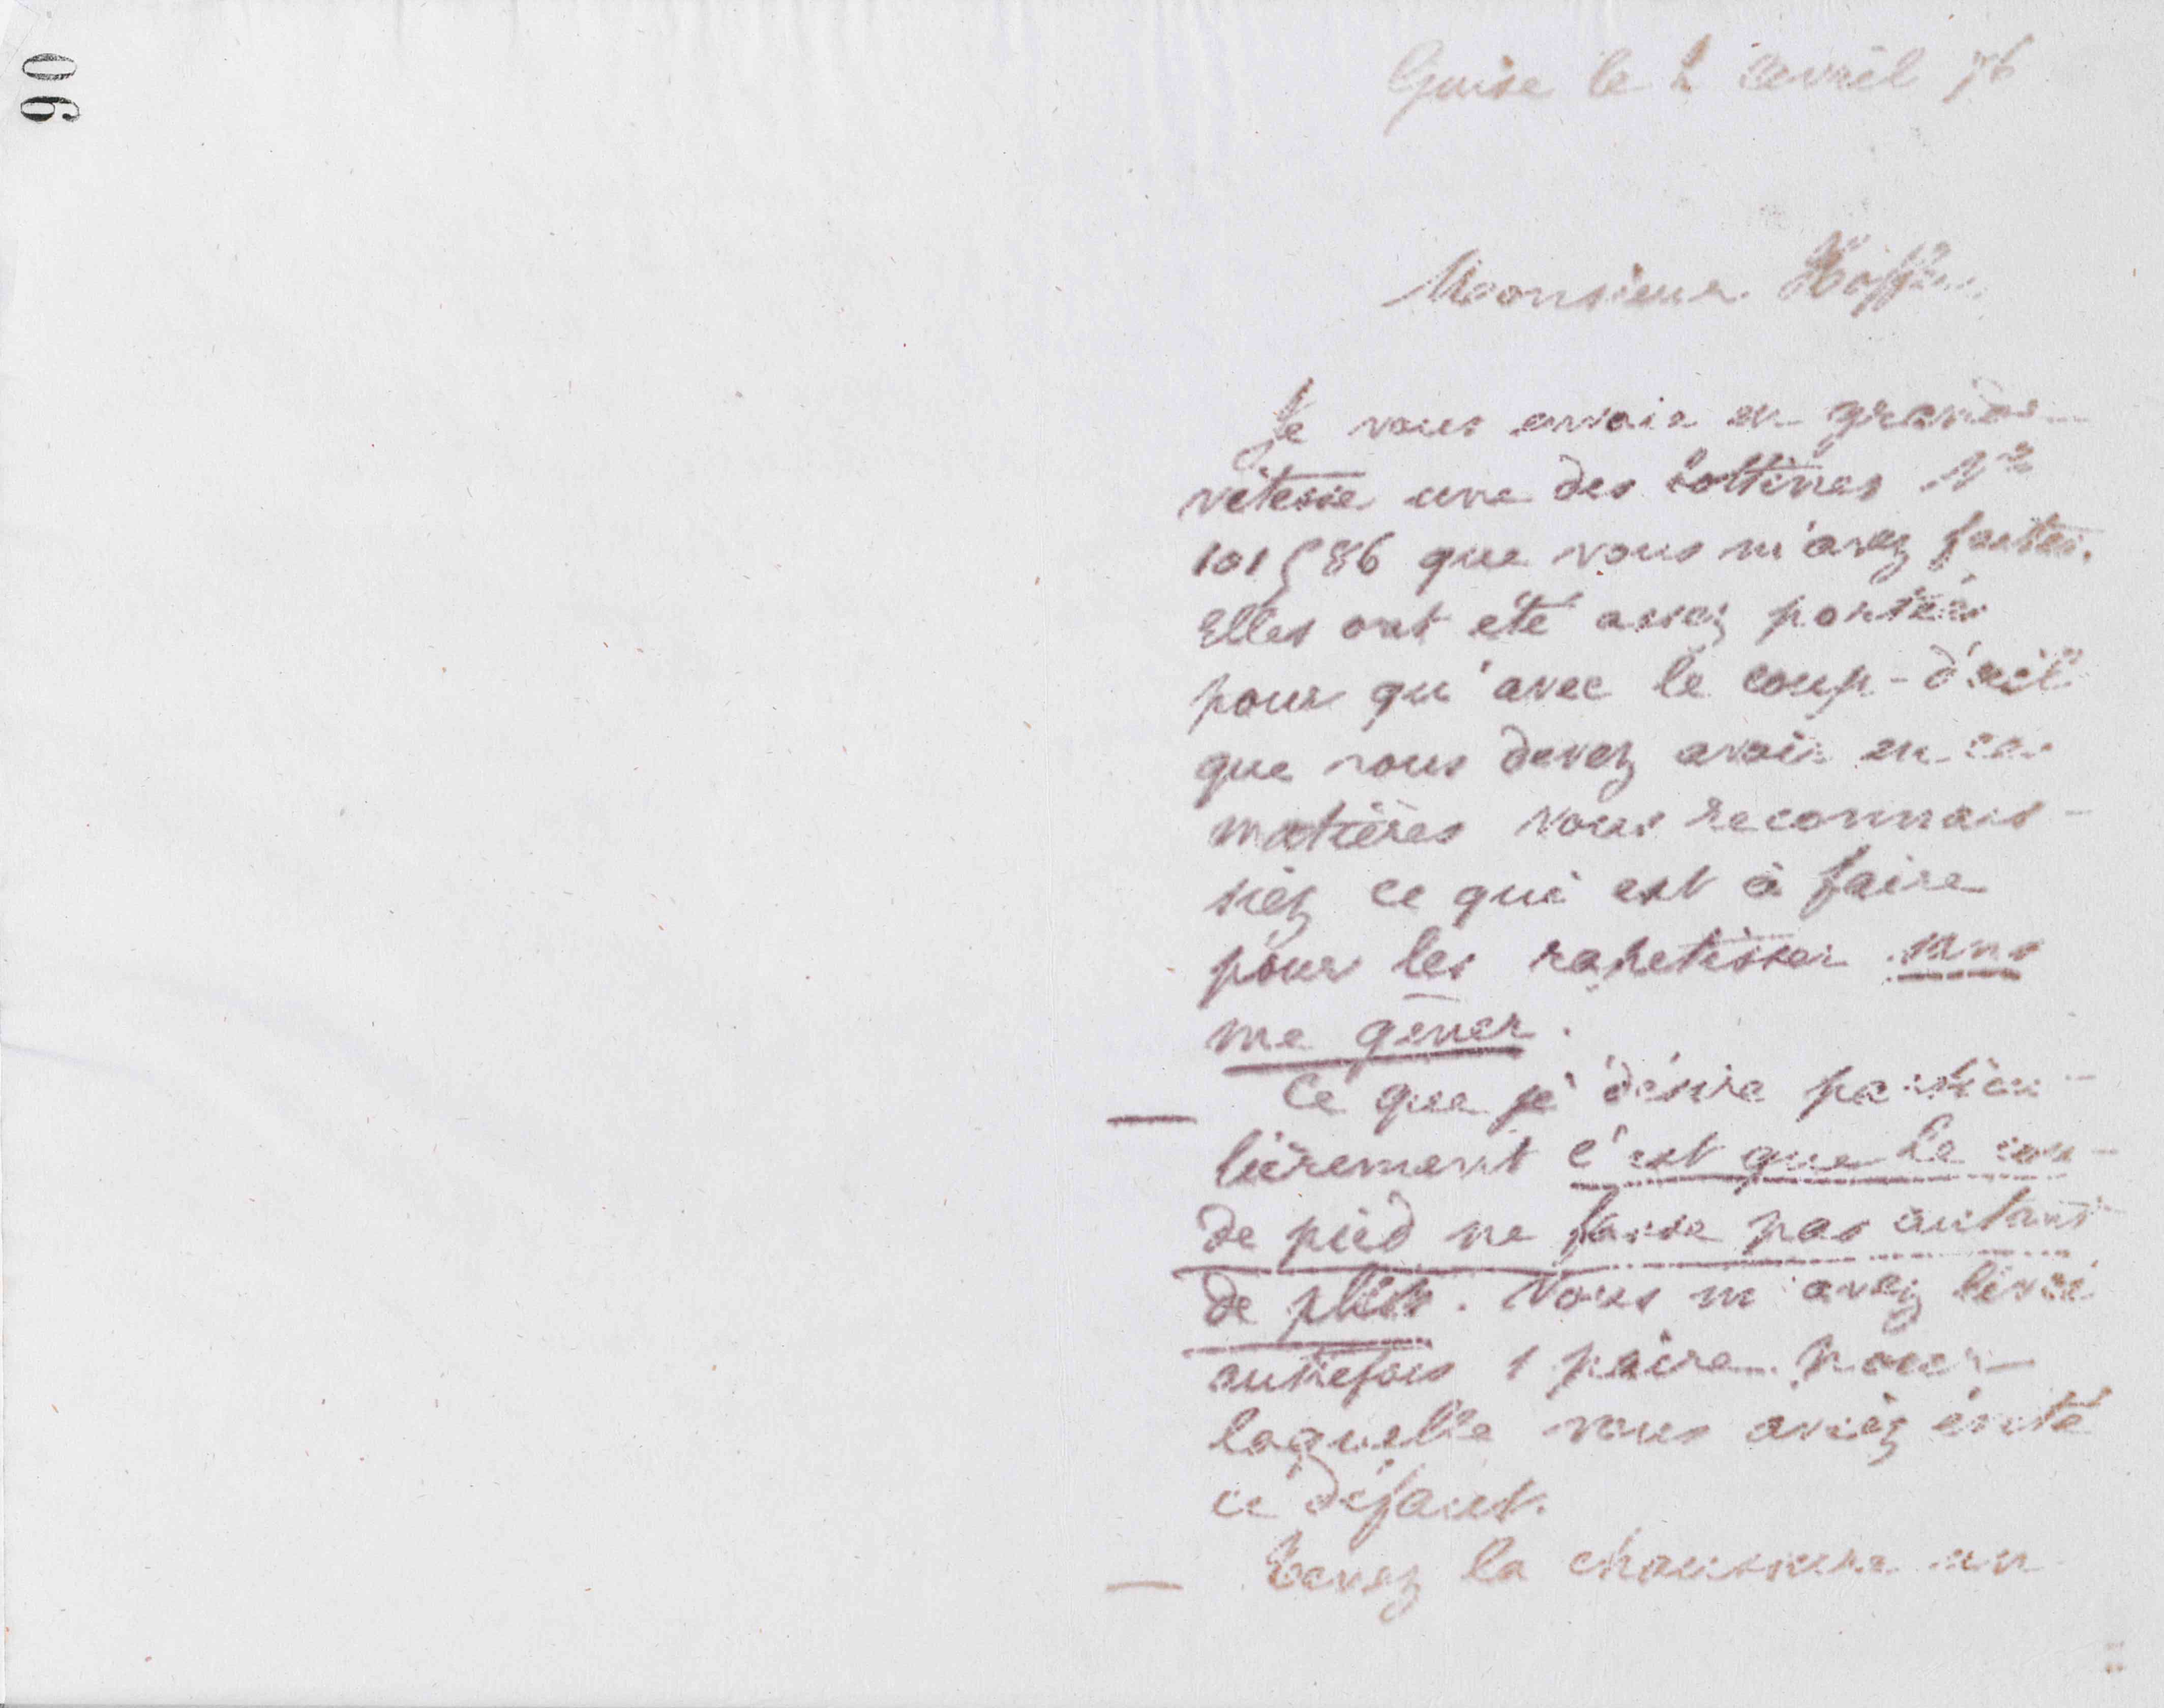 90
Guise le 2 avril 76
Monsieur
Je vous envoie en grande
vitesse une des bottines Nos
101586 que vous m'avez faites.
Elles ont été assez portées
pour qu'avec le coup-d'œil
que vous devez avoir en ces
matières vous reconnais-
siez ce qui est à faire
pour les rapetisser sans
me gêner.
— Ce que je désire particu-
lièrement c'est que le cou-
de pied ne fasse pas autant
de plis. Vous m'avez livré
autrefois 1 paire pour
laquelle vous aviez évité
ce défaut.
— Tenez la chaussure un